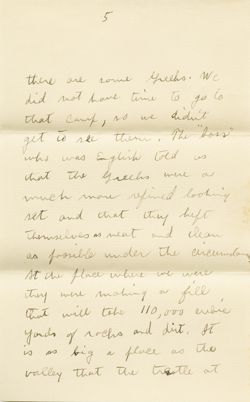 5
there are some Greeks. We
did not have time to go to
that camp, so we didn't
get to see them. The "boss"
who was English told us
that the Greeks were a
much more refined looking
set and that they kept
themselves as neat and clean
as possible under the circumstances
At the place where we were
they were making a fill
that will take 110,000 cubic
yards of rocks and dirt. It
is as big a place as the
valley that the trestle at